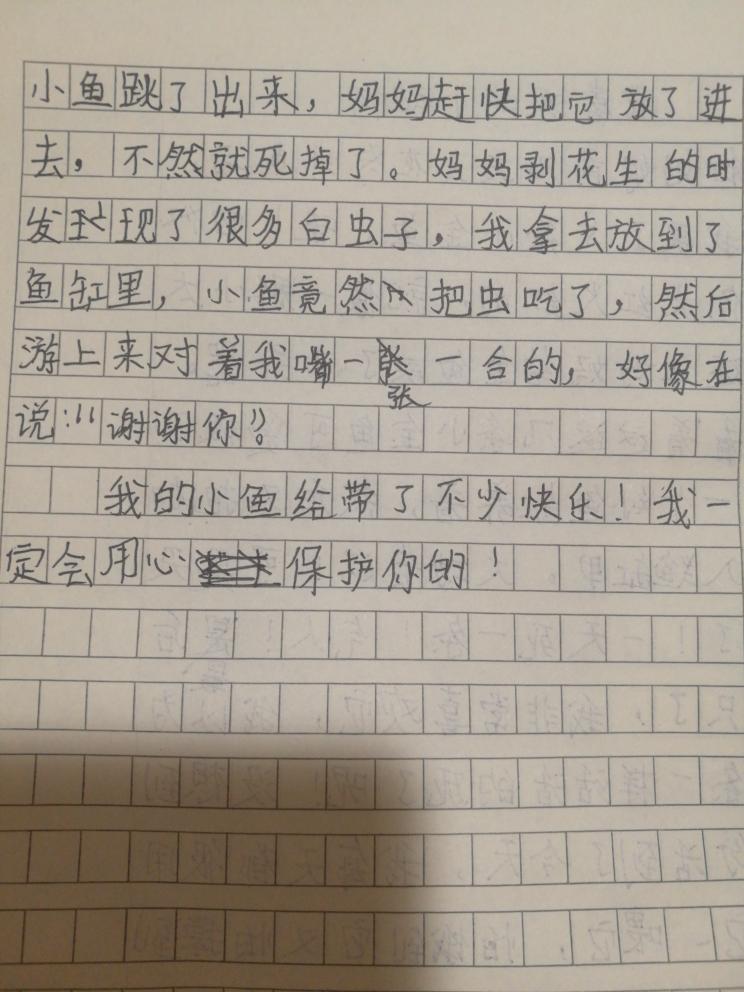 小鱼跳了出来，妈妈赶快把它放了进
去，不然就死掉了。妈妈剥花生的时
发现了很多白虫子，我拿去放到了
鱼缸里，小鱼竟然把虫吃了，然后
游上来对着我嘴一张一合的，好像在
说：“谢谢你”。
我的小鱼给带了不少快乐！我一
定会用心保护你的！